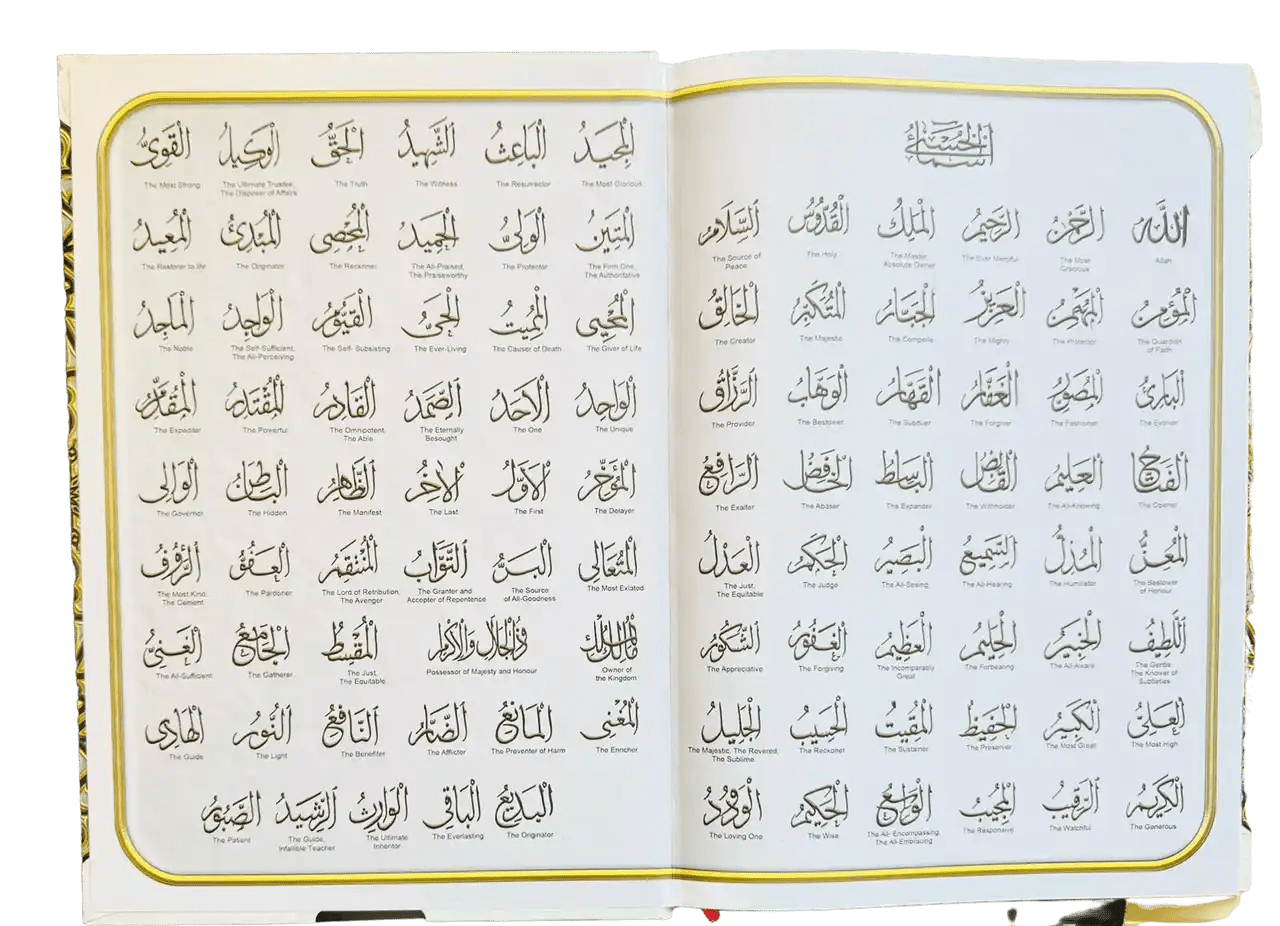 أسماء الله الحسنى
اَللّٰهُ
Allah
الرَّحْمٰنُ
The Most
Gracious
الرَّحِيْمُ
The Ever Merciful
الْمَلِكُ
The Master,
Absolute Owner
الْقُدُّوْسُ
The Holy
اَلسَّلَامُ
The Source of
Peace
الْمُؤْمِنُ
The Guardian
of Faith
الْمُهَيْمِنُ
The Protector
الْعَزِيْزُ
The Mighty
الْجَبَّارُ
The Compelle
الْمُتَكَبِّرُ
The Majestic
الْخَالِقُ
The Creator
الْبَارِئُ
The Evolver
الْمُصَوِّرُ
The Fashioner
الْغَفَّارُ
The Forgiver
الْقَهَّارُ
The Subduer
الْوَهَّابُ
The Bestower
الرَّزَّاقُ
The Provider
الْفَتَّاحُ
The Opener
الْعَلِيْمُ
The All-Knowing
الْقَابِضُ
The Withholder
الْبَاسِطُ
The Expander
الْخَافِضُ
The Abaser
الرَّافِعُ
The Exalter
الْمُعِزُّ
The Bestower
of Honour
الْمُذِلُّ
The Humiliator
السَّمِيْعُ
The All-Hearing
الْبَصِيْرُ
The All-Seeing,
الْحَكَمُ
The Judge
الْعَدْلُ
The Just,
The Equitable
اَللَّطِيْفُ
The Gentle
The Knower of
Subtleties
الْخَبِيْرُ
The All-Aware
الْحَلِيْمُ
The Forbearing
الْعَظِيْمُ
The Incomparably
Great
الْغَفُوْرُ
The Forgiving
الشَّكُوْرُ
The Appreciative
الْعَلِيُّ
The Most High
الْكَبِيْرُ
The Most Great
الْحَفِيْظُ
The Preserver
الْمُقِيْتُ
The Sustainer
الْحَسِيْبُ
The Reckoner
الْجَلِيْلُ
The Majestic, The Revered,
The Sublime.
الْكَرِيْمُ
The Generous
الرَّقِيْبُ
The Watchful
الْمُجِيْبُ
The Responsive
الْوَاسِعُ
The All- Encompassing,
The All-Embracing
الْحَكِيْمُ
The Wise
الْوَدُوْدُ
The Loving One
الْمَجِيْدُ
The Most Glorious
الْبَاعِثُ
The Resurrector
الشَّهِيْدُ
The Witness
الْحَقُّ
The Truth
الْوَكِيْلُ
The Ultimate Trustee,
The Disposer of Affairs
الْقَوِيُّ
The Most Strong
الْمَتِيْنُ
The Firm One,
The Authoritative
الْوَلِيُّ
The Protector
الْحَمِيْدُ
The All-Praised,
The Praiseworthy
الْمُحْصِي
The Reckoner
الْمُبْدِئُ
The Originator
الْمُعِيْدُ
The Restorer to life
الْمُحْيِي
The Giver of Life
الْمُمِيْتُ
The Causer of Death
الْحَيُّ
The Ever-Living
الْقَيُّوْمُ
The Self- Subsisting
الْوَاجِدُ
The Self-Sufficient,
The All-Perceiving
الْمَاجِدُ
The Noble
الْوَاحِدُ
The Unique
الْأَحَدُ
The One
الصَّمَدُ
The Eternally
Besought
الْقَادِرُ
The Omnipotent,
The Able
الْمُقْتَدِرُ
The Powerful
الْمُقَدِّمُ
The Expediter
الْمُؤَخِّرُ
The Delayer
الْأَوَّلُ
The First
الْآخِرُ
The Last
الظَّاهِرُ
The Manifest
الْبَاطِنُ
The Hidden
الْوَالِي
The Governor
الْمُتَعَالِي
The Most Exlated
الْبَرُّ
The Source
of All-Goodness
التَّوَّابُ
The Granter and
Accepter of Repentence
الْمُنْتَقِمُ
The Lord of Retribution,
The Avenger
الْعَفُوُّ
The Pardoner
الرَّؤُوْفُ
The Most Kind,
The Cement
مَالِكُ الْمُلْكِ
Owner of
the Kingdom
ذُوالْجَلَالِ وَالْإِكْرَامِ
Possessor of Majesty and Honour
الْمُقْسِطُ
The Just,
The Equitable
الْجَامِعُ
The Gatherer
الْغَنِيُّ
The All-Sufficient
الْمُغْنِي
The Enricher
الْمَانِعُ
The Preventer of Harm
الضَّارُّ
The Afflicter
النَّافِعُ
The Benefiter
النُّوْرُ
The Light
الْهَادِي
The Guide
الْبَدِيْعُ
The Originator
الْبَاقِي
The Everlasting
الْوَارِثُ
The Ultimate
Inheritor
الرَّشِيْدُ
The Guide,
Infallible Teacher
الصَّبُوْرُ
The Patient